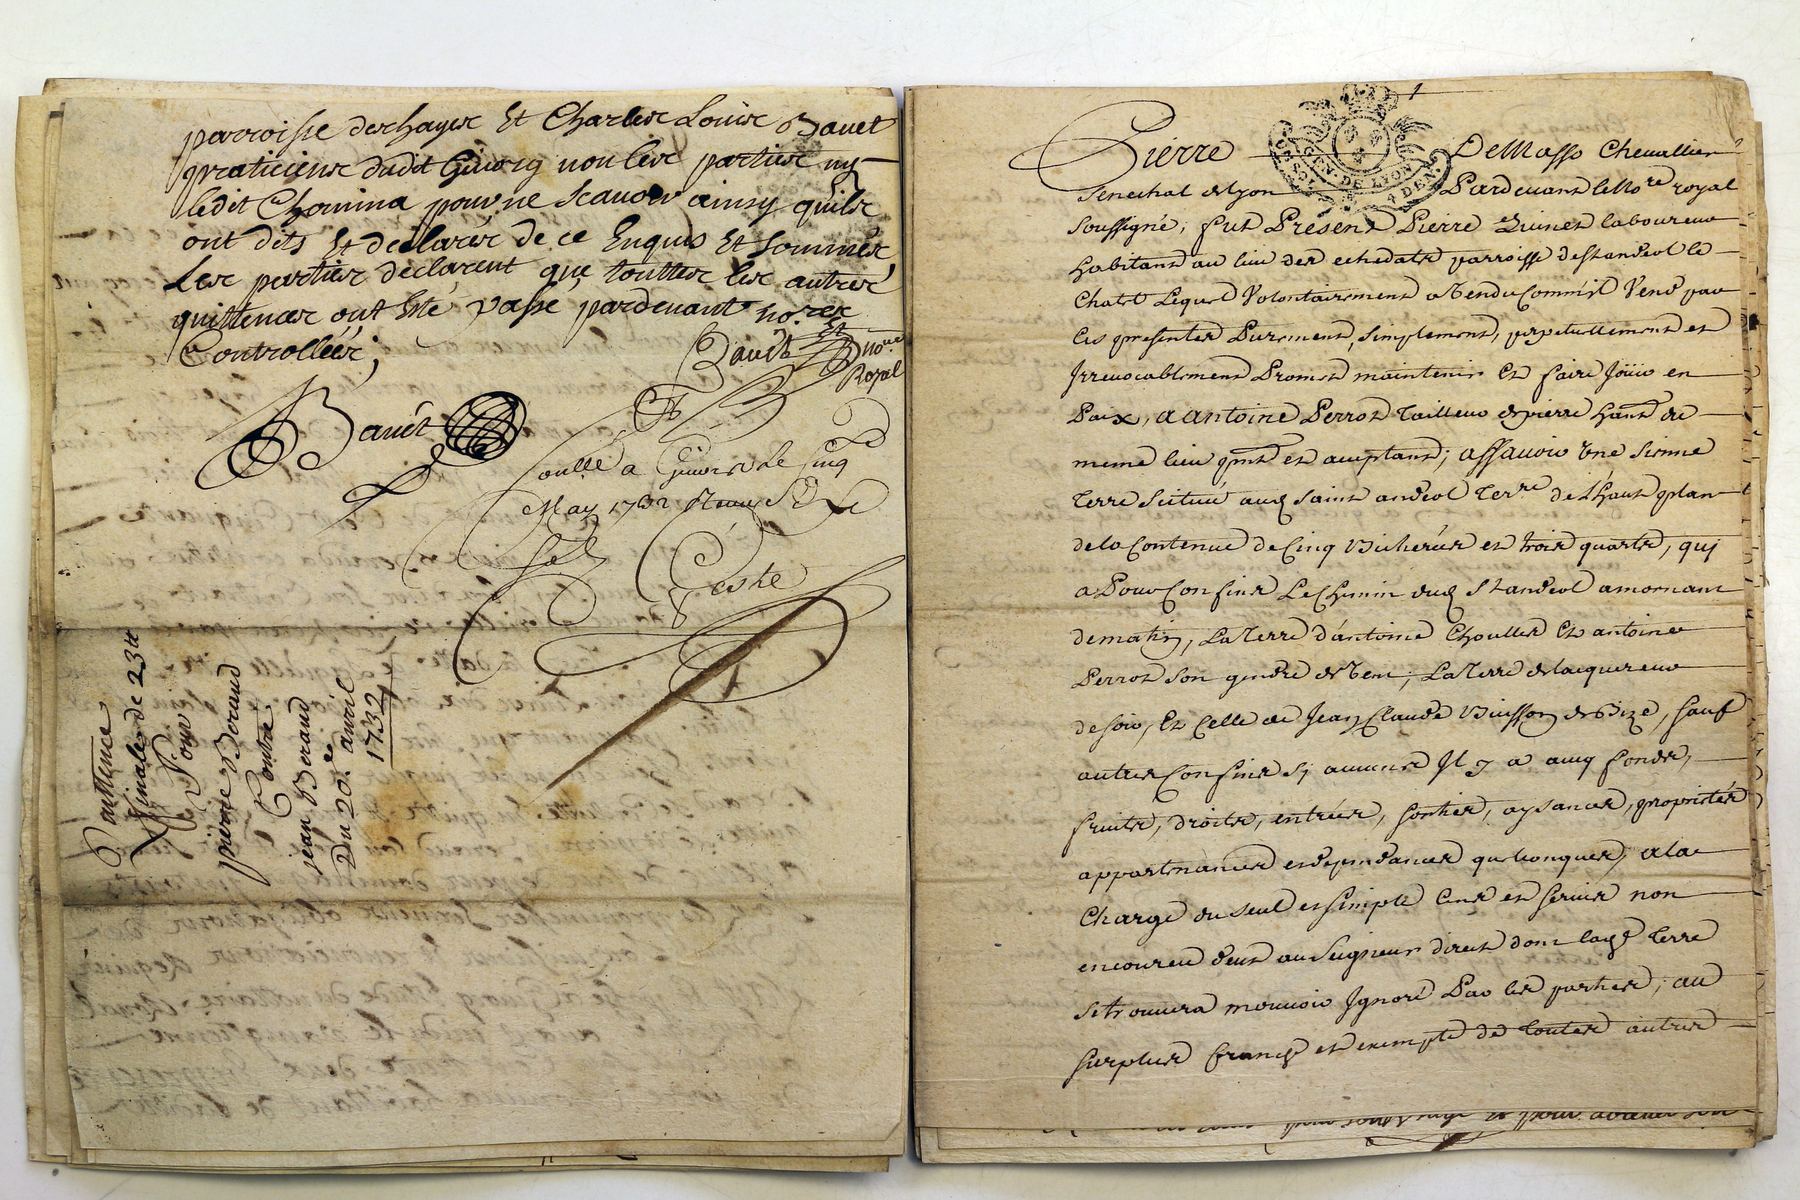 parroisse deshayes Et Charles Louis Bauet
praticiens dudit Giuors non les parties ny
ledit Chomina pour ne Scauoir ainsy quils
ont dits Et declarés de ce Enquis Et sommés
Les parties declarent que touttes les autres
quittences ont Esté passé pardeuant no.res
Et Controlléés;
Bauet no.re
Royal
Bauêt
Coñllé a Giuors Le Cinq
May 1732 Reçu
Sols
Quittence
ffinale de 23 tt
Pour
pierre Beraud
Contre
jean Beraud
Du 20.e auril
1732
1
GEN. DE LYON
DEN.
Pierre DeMasso Cheuallier
Senechal de Lyon Pardeuant le No.re royal
Soussigné; fut Present Pierre laboureur
habitant au lieu des echedats parroisse de St andeol le
Chatt Lequel Volontairement Vend par
Ces presentes Purement, Simplement, perpetuellement et
Irreuocablement Promet maintenir et faire Joüir en
Paix, a Antoine Perrot Tailleur de pierre hant du
meme lieu pnt et aceptant; assauoir Une Sienne
Terre Scituée aud Saint andeol Terr.e de Lhaut plan
de la Contenue de Cinq Bicherées et trois quarts, qui
a Pour Confins Le Chemin dud St andeol a mornant
de matin, La Terre d'antoine Choullet Et antoine
Perrot Son gendre de Vent, La Terre de lacquereur
de Soir, Et Celle de Jean Claude Buisson de Bize, Sauf
autres Confins Sy aucuns Il y a auq fonds,
fruits, droits, entrées, Sorties, aysances, proprietés
appartenances et dependances quelconques, a la
Charge du Seul et Simple Cens et Seruis non
encoureu deub au Seigneur direct dont lad.e Terre
Se trouuera mouuoir Ignoré Par les parties, au
Surplus franche et exempte de Toutes autres